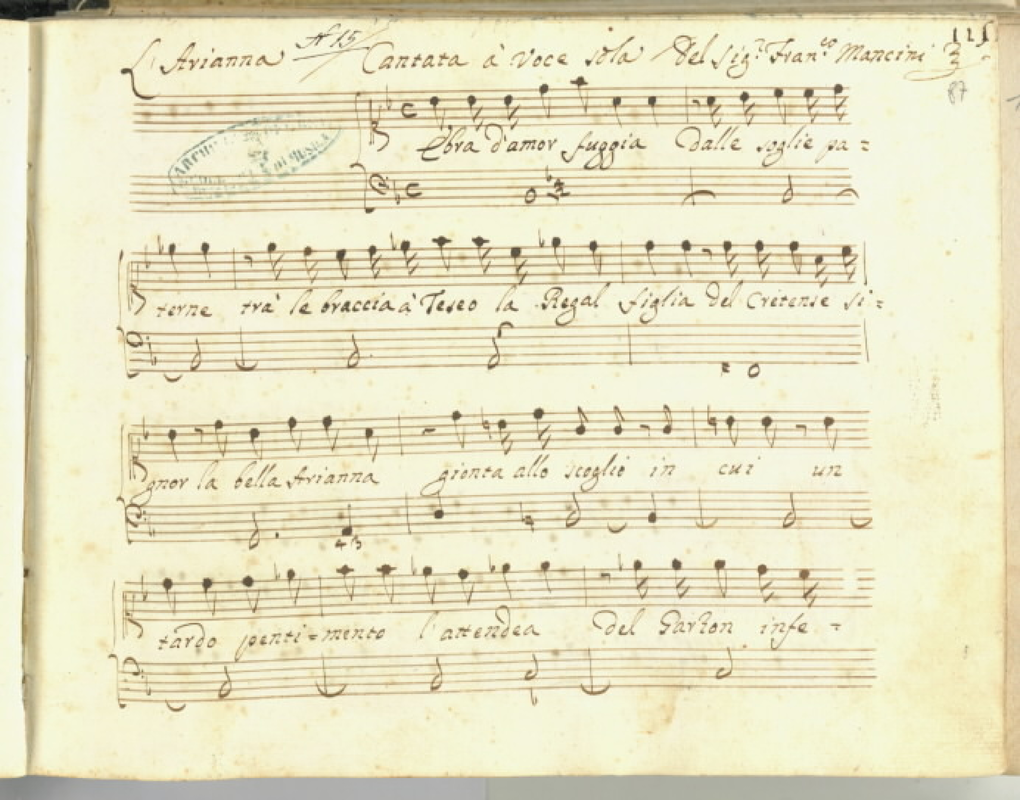 L'Arianna N 15 Cantata à Voce sola Del Sig.r Fran.co Mancini
121
87
Ebra d'amor fuggia Dalle soglie pa=
terne trà le braccia à Teseo la Regal figlia del Cretense si=
gnor la bella Arianna gionta allo scoglio in cui un
4 3
tardo penti=mento l'attendea Del Garzon infe=